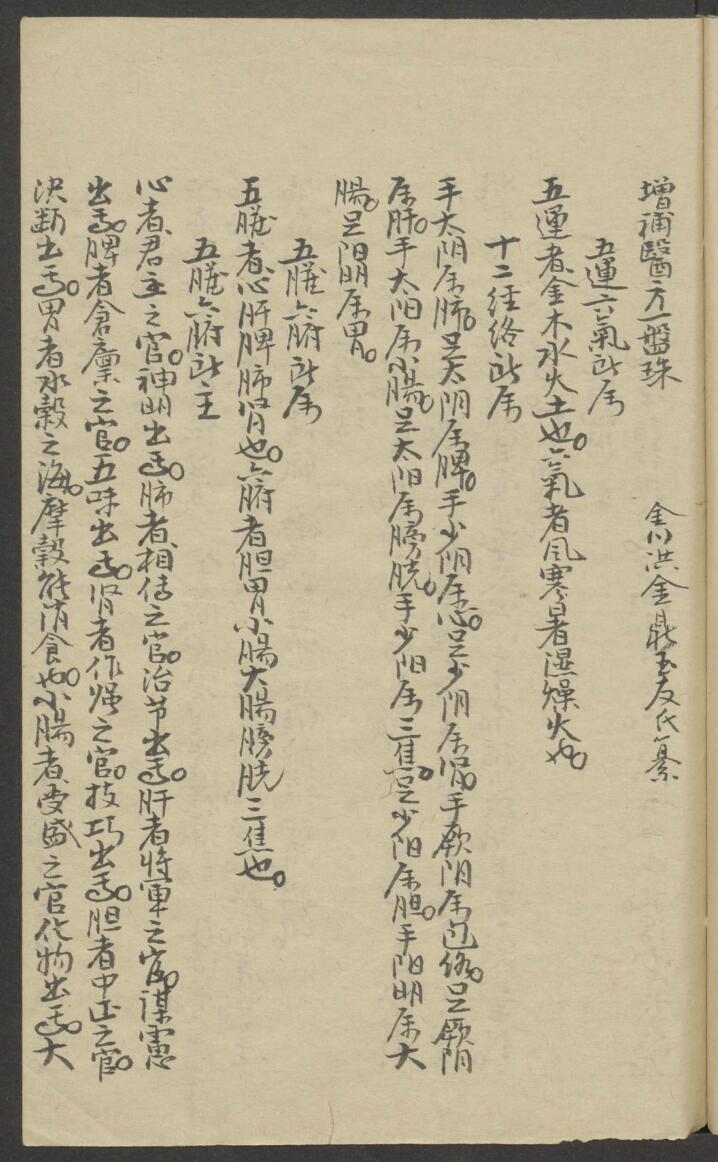 增補醫方一盤珠　金川洪金鼎玉友氏纂
五運六氣所属
五運者、金木水火土也。六氣者、風寒暑濕燥火也。
十二経絡所属
手太阴属肺。足太阴属脾。手少阴属心。足少阴属肾。手厥阴属包络。足厥阴
属肝。手太阳属小腸。足太阳属膀胱。手少阳属三焦。足少阳属胆。手阳明属大
腸。足阳明属胃。
五臟六腑所属
五臟者、心肝脾肺肾也。六腑者、胆胃小腸大腸膀胱三焦也。
五臟六腑所主
心者、君主之官。神明出焉。肺者、相傳之官。治节出焉。肝者、將軍之官。謀慮
出焉。脾者、倉廪之官。五味出焉。肾者、作强之官。技巧出焉。胆者、中正之官。
决断出焉。胃者、水穀之海。摩穀能消食也。小腸者、受盛之官、化物出焉。大